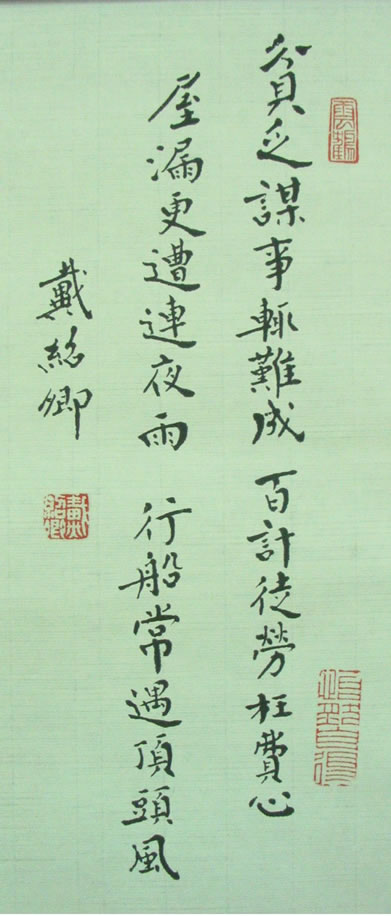 貧乏謀事輒難成 百計徒勞枉費心
屋漏更遭連夜雨 行船常遇頂頭風
戴紹卿
戴紹卿